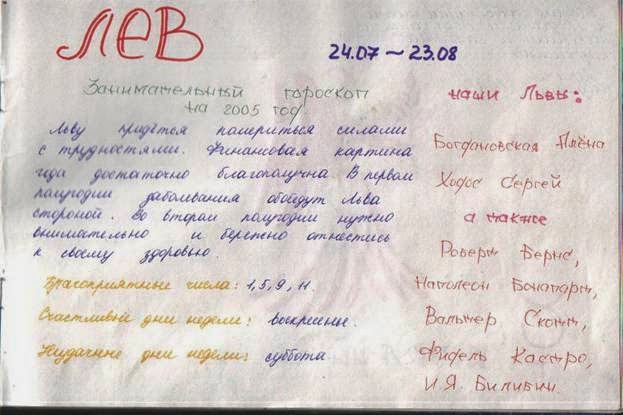 ЛЕВ
24.07 ~ 23.08
Занимательный гороскоп
на 2005 год
Льву придётся помериться силами
с трудностями. Финансовая картина
года достаточно благополучна. В первом
полугодии заболевания обойдут Льва
стороной. Во втором полугодии нужно
внимательно и бережно отнестись
к своему здоровью.
Благоприятные числа: 1, 5, 9, 11.
Счастливые дни недели: воскресенье.
Неудачные дни недели: суббота
наши Львы:
Богдановская Алёна
Ходос Сергей
а также
Роберт Бернс,
Наполеон Бонапарт,
Вальтер Скотт,
Фидель Кастро,
И.Я. Билибин.